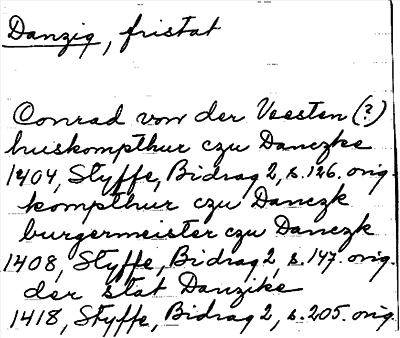 Danzig, fristat
Conrad von der Veesten (?)
huskompthur czu Danczke
1404, Styffe, Bidrag 2, s. 126. orig.
kompthur czu Danczk
burgermeister czu Danczk
1408, Styffe, Bidrag 2, s. 147. orig.
der stat Danzike
1418, Styffe, Bidrag 2, s. 205. orig.